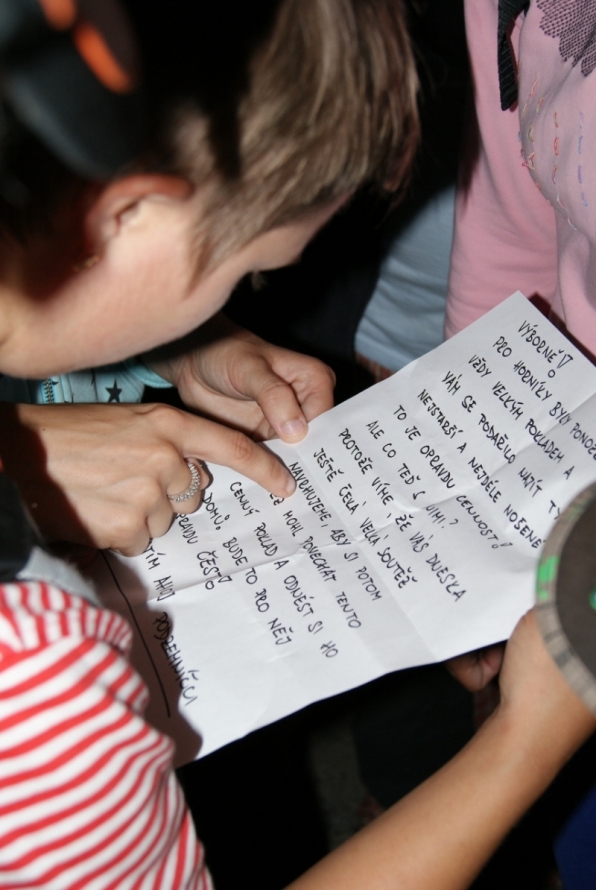 VÝBORNĚ!!
PRO HORNÍKY BYLY PONOŽ
VŽDY VELKÝM POKLADEM A
VÁM SE PODAŘILO URVÍT TY
NEJSTARŠÍ A NEJDÉLE NOŠENÉ
TO JE OPRAVDU CENNOST!
ALE CO TEĎ S NIMI?
PROTOŽE VÍME, ŽE VÁS DNESKA
JEŠTĚ ČEKÁ VELKÁ SOUTĚŽ
NAVRHUJEME, ABY SI POTOM
MOHL PONECHAT TENTO
CENNÝ POKLAD A ODNÉST SI HO
DOMŮ. BUDE TO PRO NĚJ
PRAVDU ČEST!
TÍM AHOJ PODZEMNÍČCI